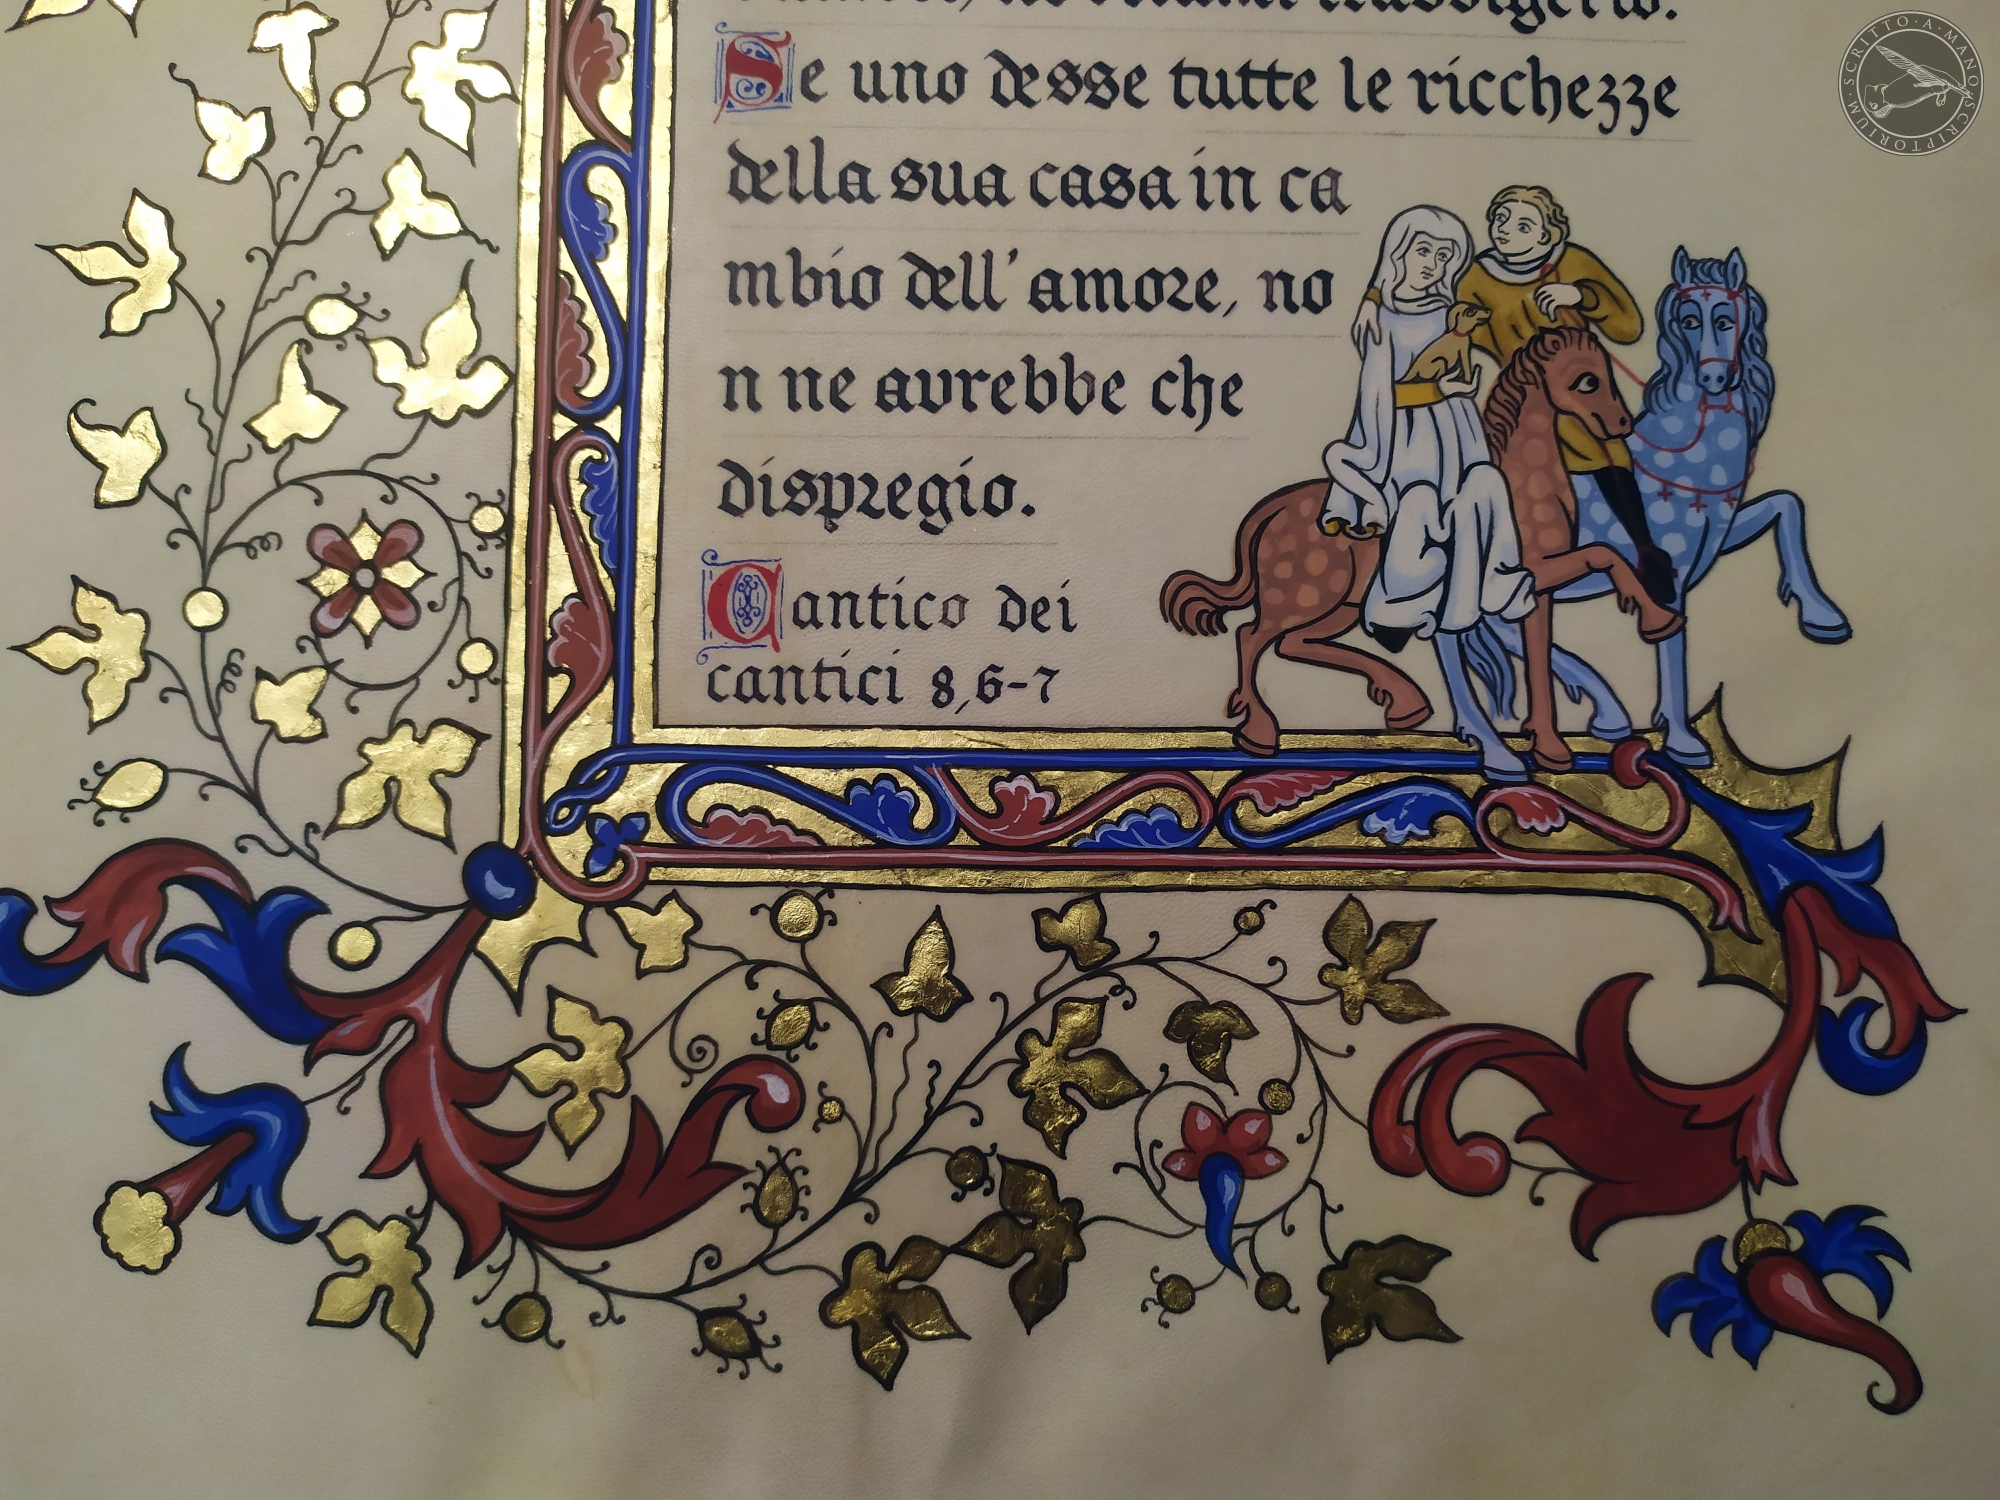 Se uno desse tutte le ricchezze
della sua casa in ca
mbio dell' amore, no
n ne avrebbe che
dispregio.
Cantico dei
cantici 8,6-7
SCRITTO·A·MANO·SCRIPTORIUM·